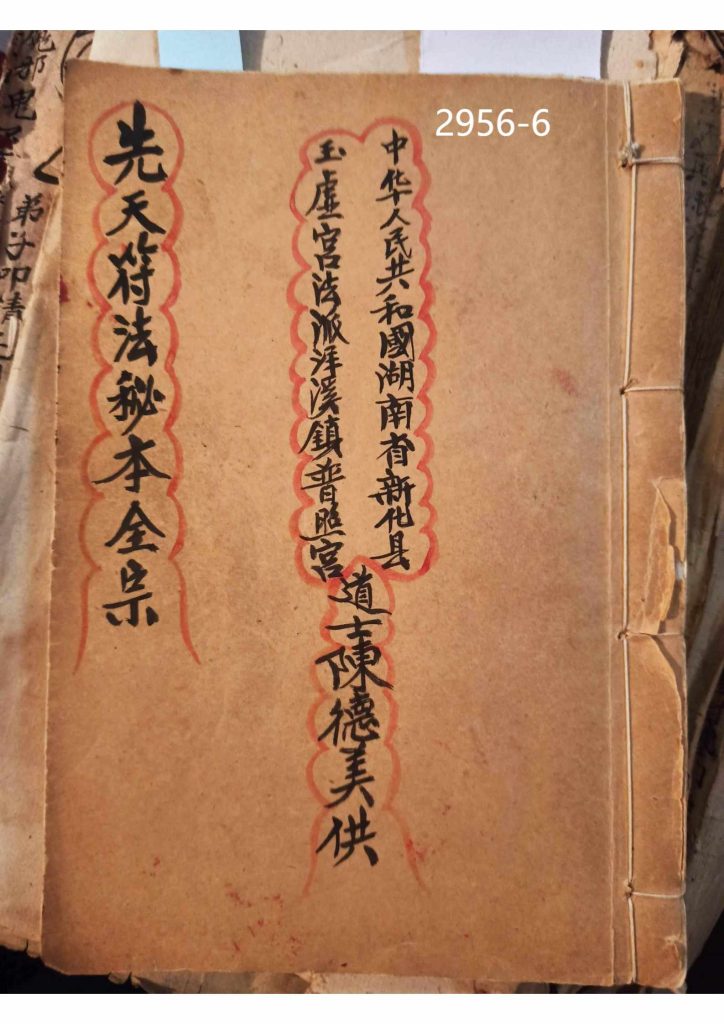 2956-6
中华人民共和國湖南省新化县
玉虛宮法派洋溪鎮普照宮
道士陳德美供
先天符法秘本全宗
弟子叩請